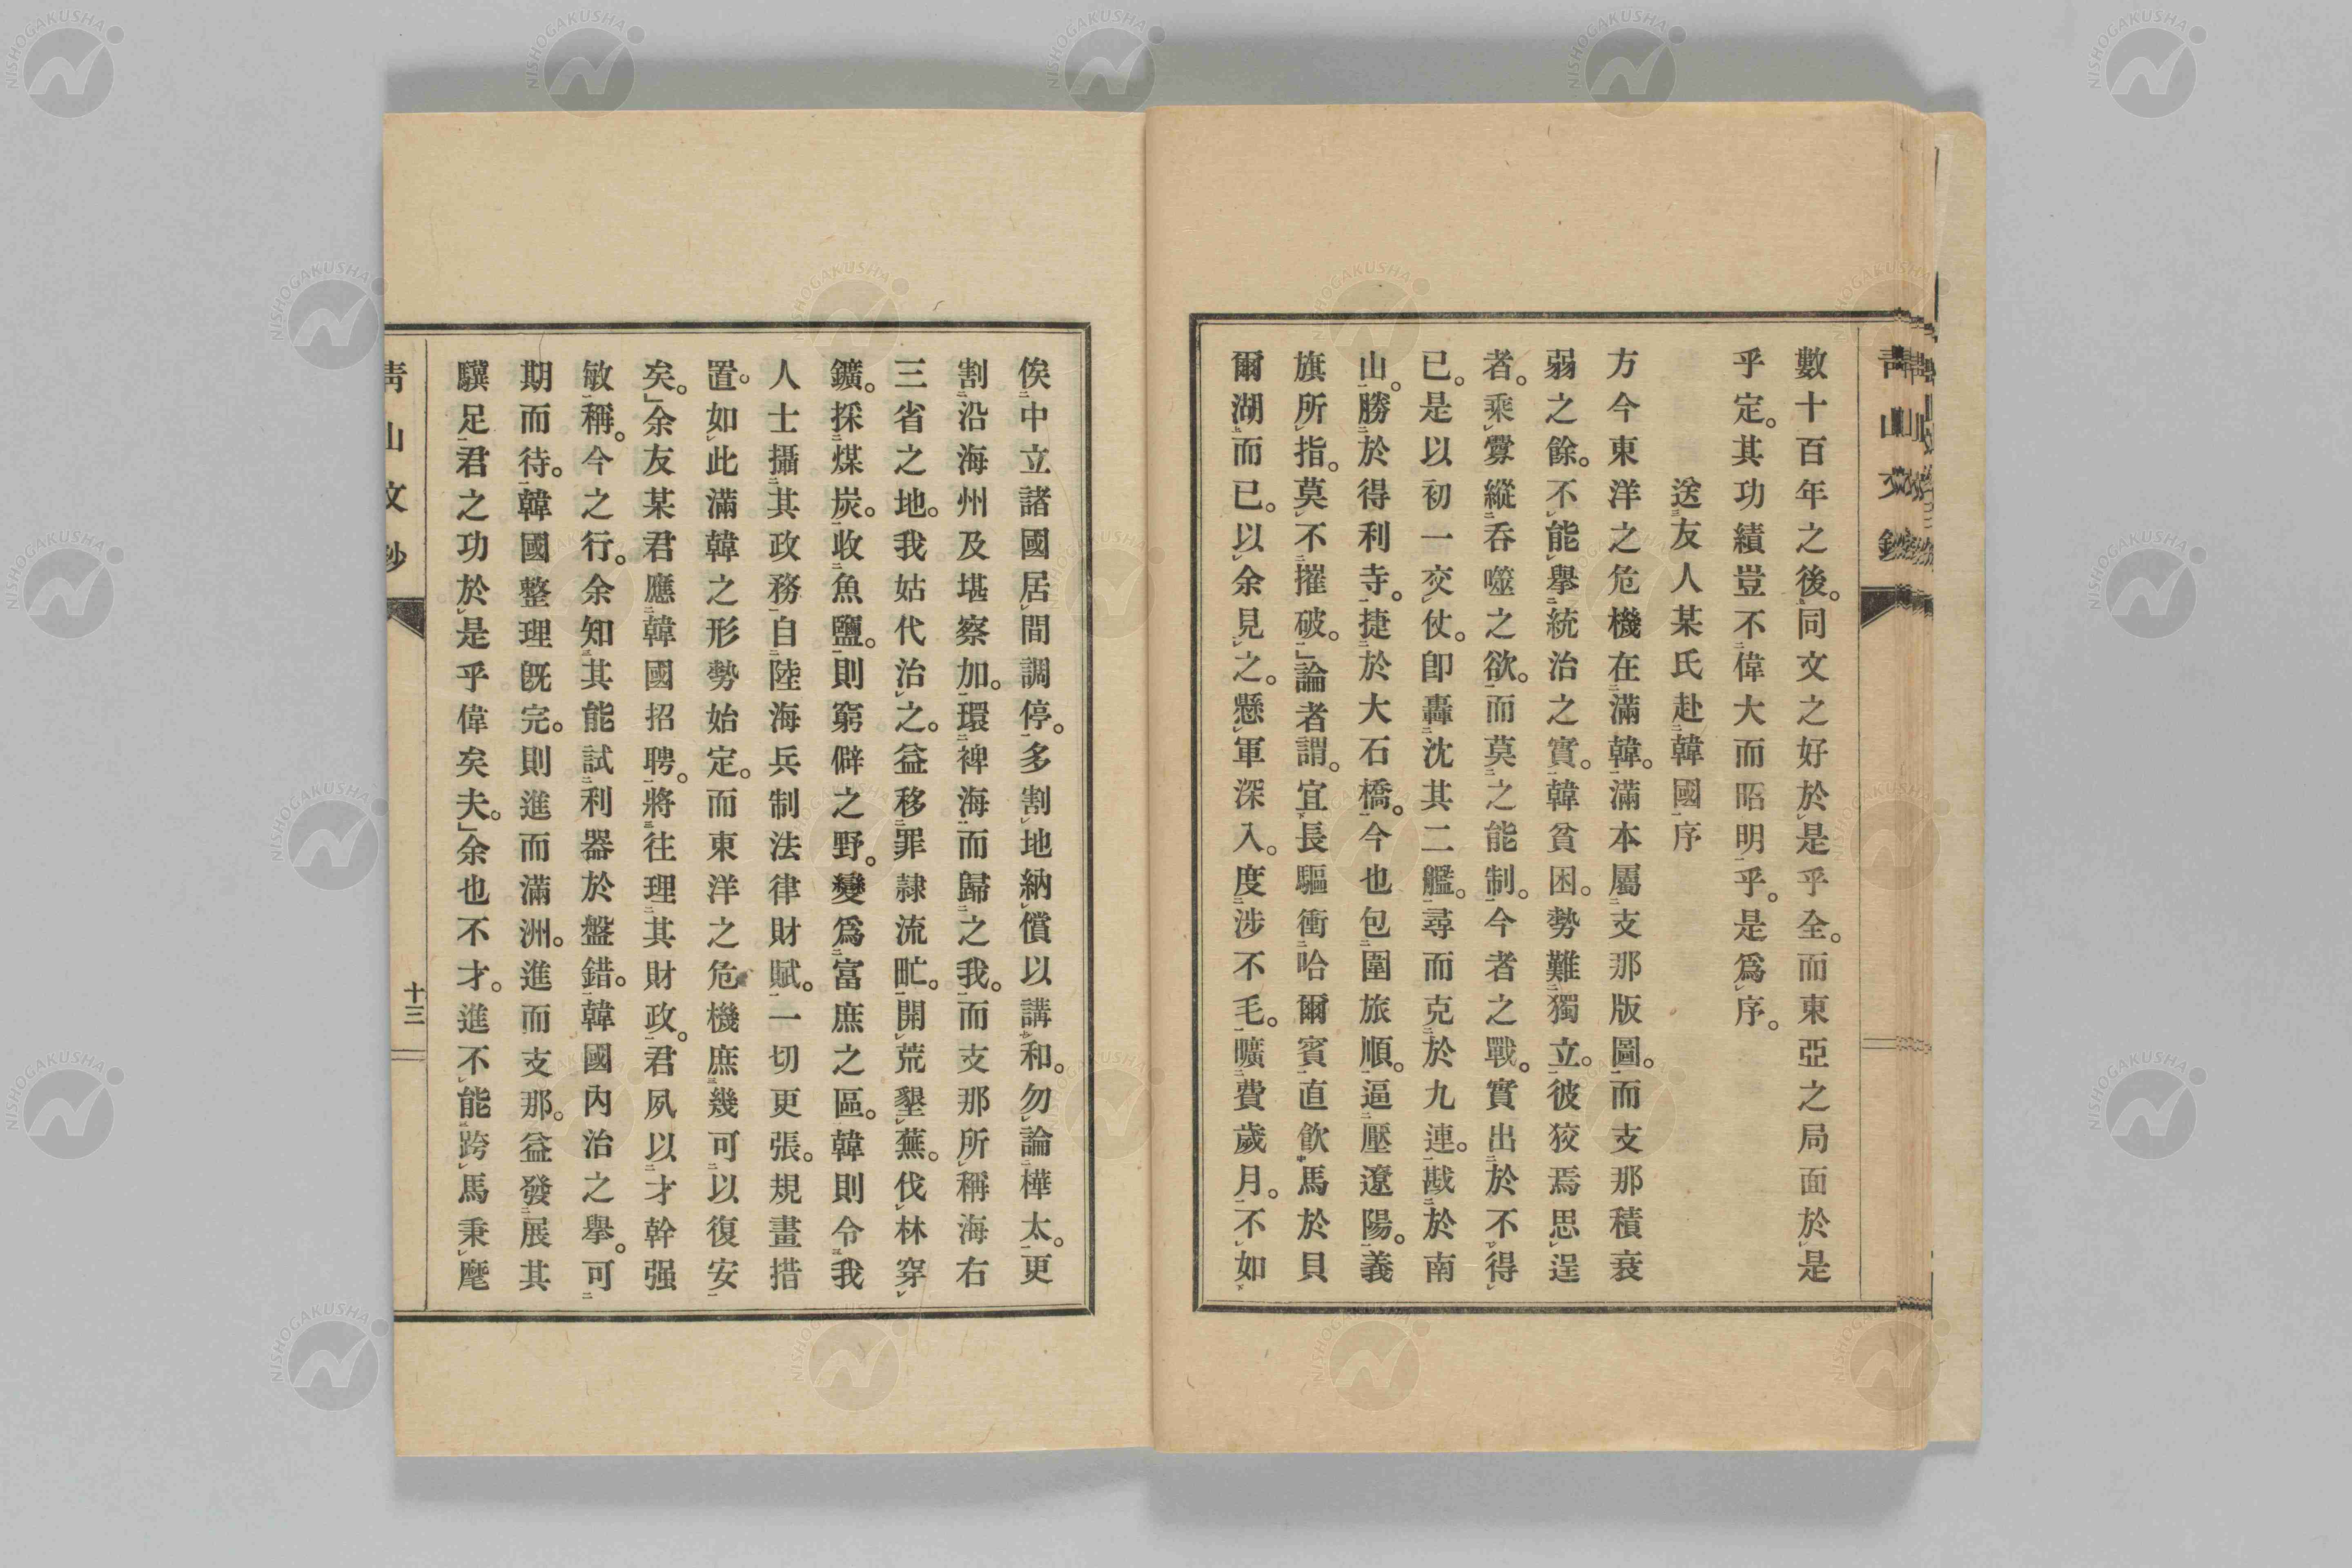 數十百年之後。同文之好於是乎全。而東亞之局面於是
乎定。其功績豈不偉大而昭明乎。是爲序。
送友人某氏赴韓國序
方今東洋之危機在滿韓。滿本屬支那版圖。而支那積衰
弱之餘。不能擧統治之實。韓貧困。勢難獨立。彼狡焉思逞
者。乘釁縱呑噬之欲。而莫之能制。今者之戰。實出於不得
已。是以初一交仗。卽轟沈其二艦。尋而克於九連。戡於南
山。勝於得利寺。捷於大石橋。今也包圍旅順。逼壓遼陽。義
旗所指。莫不摧破。」論者謂。宜長驅衝哈爾賓直飮馬於貝
爾湖而已。以余見之。懸軍深入。度涉不毛。曠費歲月。不如
俟中立諸國居間調停。多割地納償以講和。勿論樺太。更
割沿海州及堪察加。環裨海而歸之我。而支那所稱海右
三省之地。我姑代治之。益移罪隷流甿。開荒墾蕪。伐林穿
鑛。採煤炭。收魚鹽。則窮僻之野。變爲富庶之區。韓則令我
人士攝其政務自陸海兵制法律財賦。一切更張。規畫措
置。如此滿韓之形勢始定。而東洋之危機庶幾可以復安
矣。」余友某君應韓國招聘。將往理其財政。君夙以才幹强
敏稱。今之行。余知其能試利器於盤錯。韓國內治之擧。可
期而待。韓國整理旣完。則進而滿洲。進而支那。益發展其
驥足君之功於是乎偉矣夫。」余也不才。進不能跨馬秉麾
靑山文鈔
十三
NISHOGAKUSHA